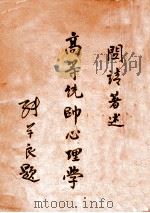 詩著述
高等統帥心理學
張学良題